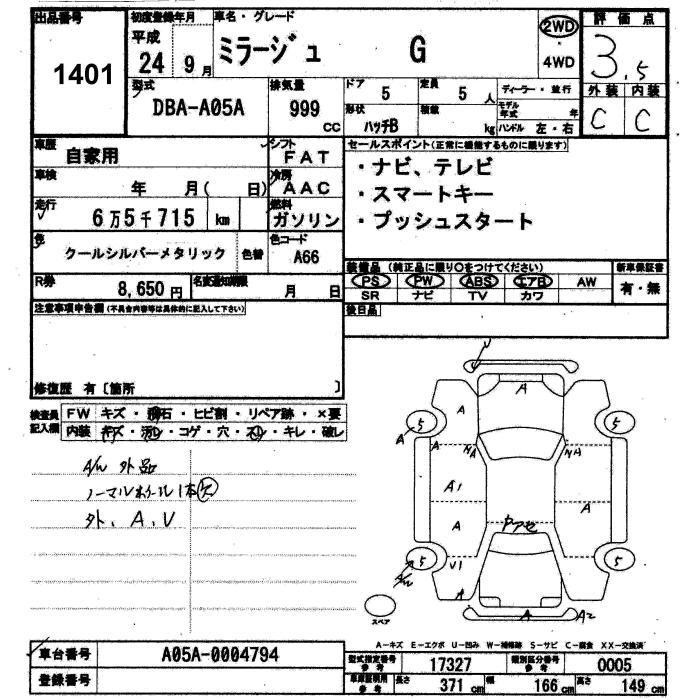 出品番号
1401
初度登録年月
平成
24 9月
車名・グレード
ミラージュ G
2WD
・
4WD
評価点
3.5
外装 内装
C C
型式
DBA-A05A
排気量
999
CC
ドア
5
定員
5 人
ディーラー・並行
形状
ハッチB
積載
kg
モデル年式 年
ハンドル 左・右
車歴
自家用
シフト
FAT
車検
年 月( 日)
冷房
AAC
走行
6万5千715 km
燃料
ガソリン
色
クールシルバーメタリック
色替
色コード
A66
R券
8,650円
名変通知期限
月 日
セールスポイント(正常に機能するものに限ります)
・ナビ、テレビ
・スマートキー
・プッシュスタート
装備品 (純正品に限り〇をつけてください)
新車保証書
PS PW ABS エアB AW
有・無
SR ナビ TV カワ
後日品
注意事項申告欄(不具合内容等は具体的に記入して下さい)
修復歴 有〔箇所 〕
検査員
記入欄
FW キズ・飛石・ヒビ割・リペア跡・×要
内装 キズ・汚レ・コゲ・穴・スレ・キレ・破レ
A/W 外品
ノーマルホイール1本欠
外、A、V
V
A
A
5
5
A
A
A
A
A1
A
A
V1
5
5
A/W
A
A
A2
スペア
A-キズ E-エクボ U-凹み W-補修跡 S-サビ C-腐食 XX-交換済
車台番号
A05A-0004794
登録番号
型式指定番号
参考
17327
類別区分番号
参考
0005
車庫証明用
参考
長さ
371 cm
幅
166 cm
高さ
149 cm